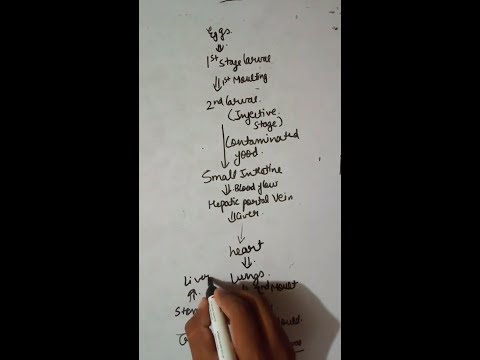 Eggs
1st stage larvae
1st Moulting
2nd larvae
(Injective
stage)
Contaminated
food
Small Intestine
Blood flow
Hepatic portal Vein
liver
heart
Lungs
Liver
2nd Moult